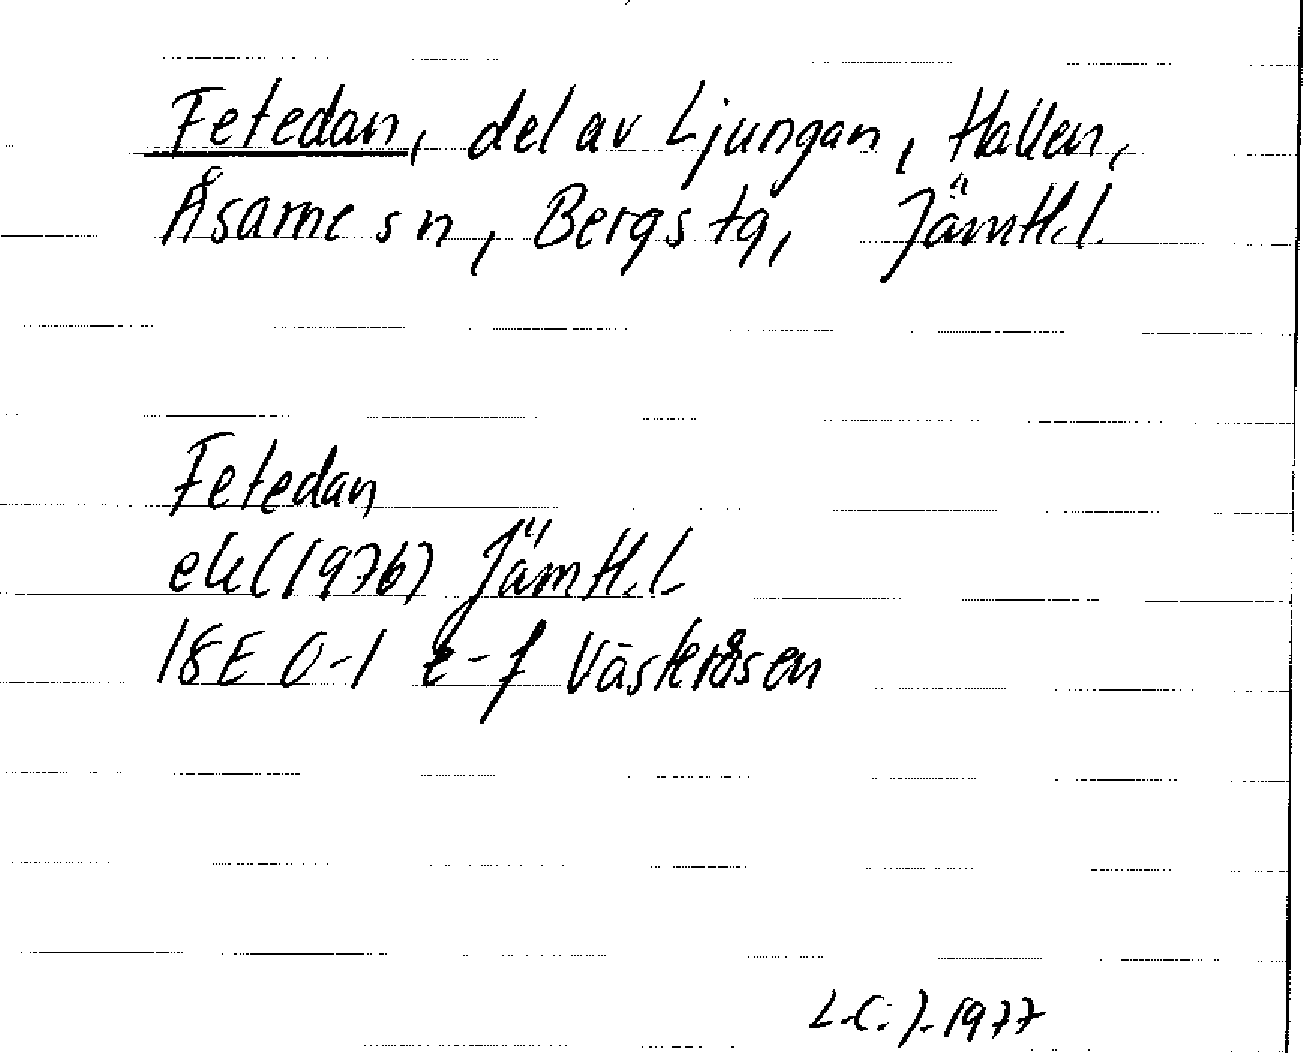 Fetedan, del av Ljungan, Hallen,
Åsarne sn, Bergs tg, Jämtl.l.
Fetedan
ek(1976) Jämtl.l.
18E 0-1 e-f Västeråsen
L.C.J. 1977